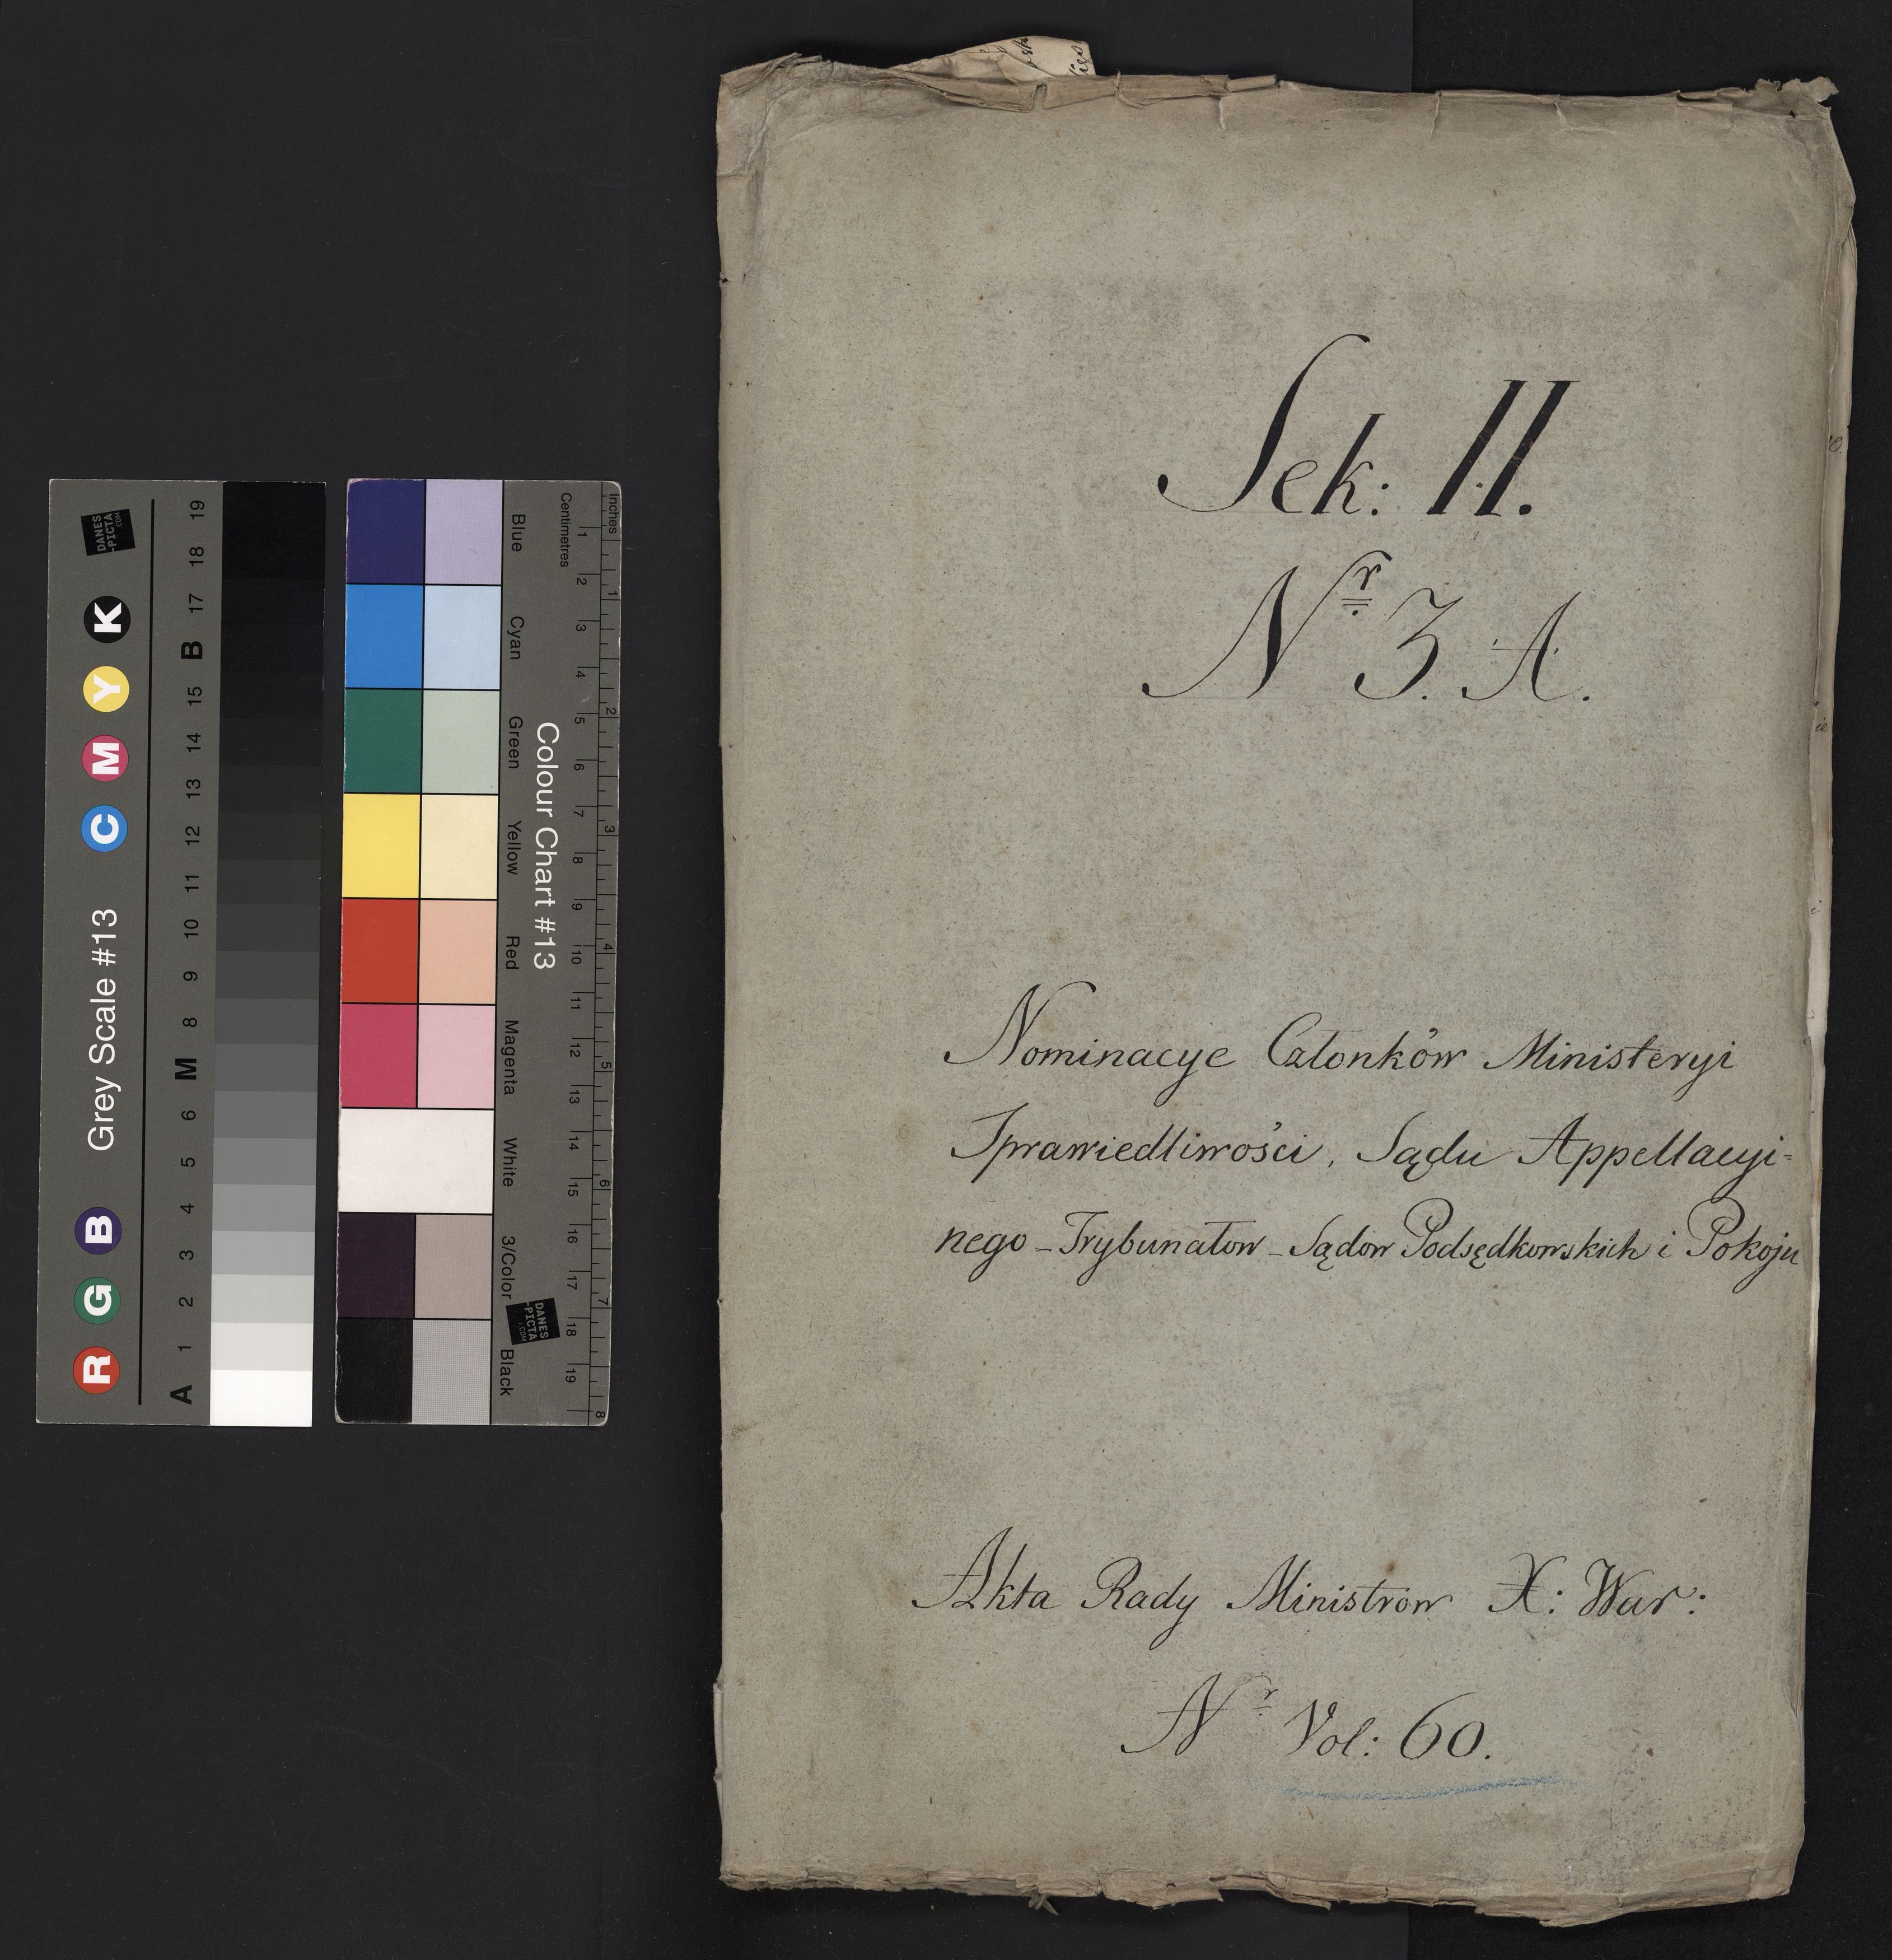 Sek: II.
Nr 3. A.
Nominacye Członków Ministeryi
Sprawiedliwości, Sądu Appellacyi=
nego - Trybunałow - Sądow Podsędkowskich i Pokoju
Akta Rady Ministrow X: War:
Nr Vol: 60.
Grey Scale #13
R G B C M Y K
A 1 2 3 4 5 6 M 8 9 10 11 12 13 14 15 B 17 18 19
DANES
-PICTA
.COM
Colour Chart #13
Blue Cyan Green Yellow Red Magenta White 3/Color Black
Centimetres
1 2 3 4 5 6 7 8 9 10 11 12 13 14 15 16 17 18 19
Inches
1 2 3 4 5 6 7 8
DANES
-PICTA
.COM